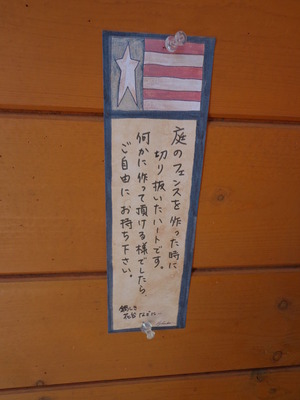 庭のフェンスを作った時に
切り抜いたハートです。
何かに作って頂ける様でしたら、
ご自由にお持ち下さい。